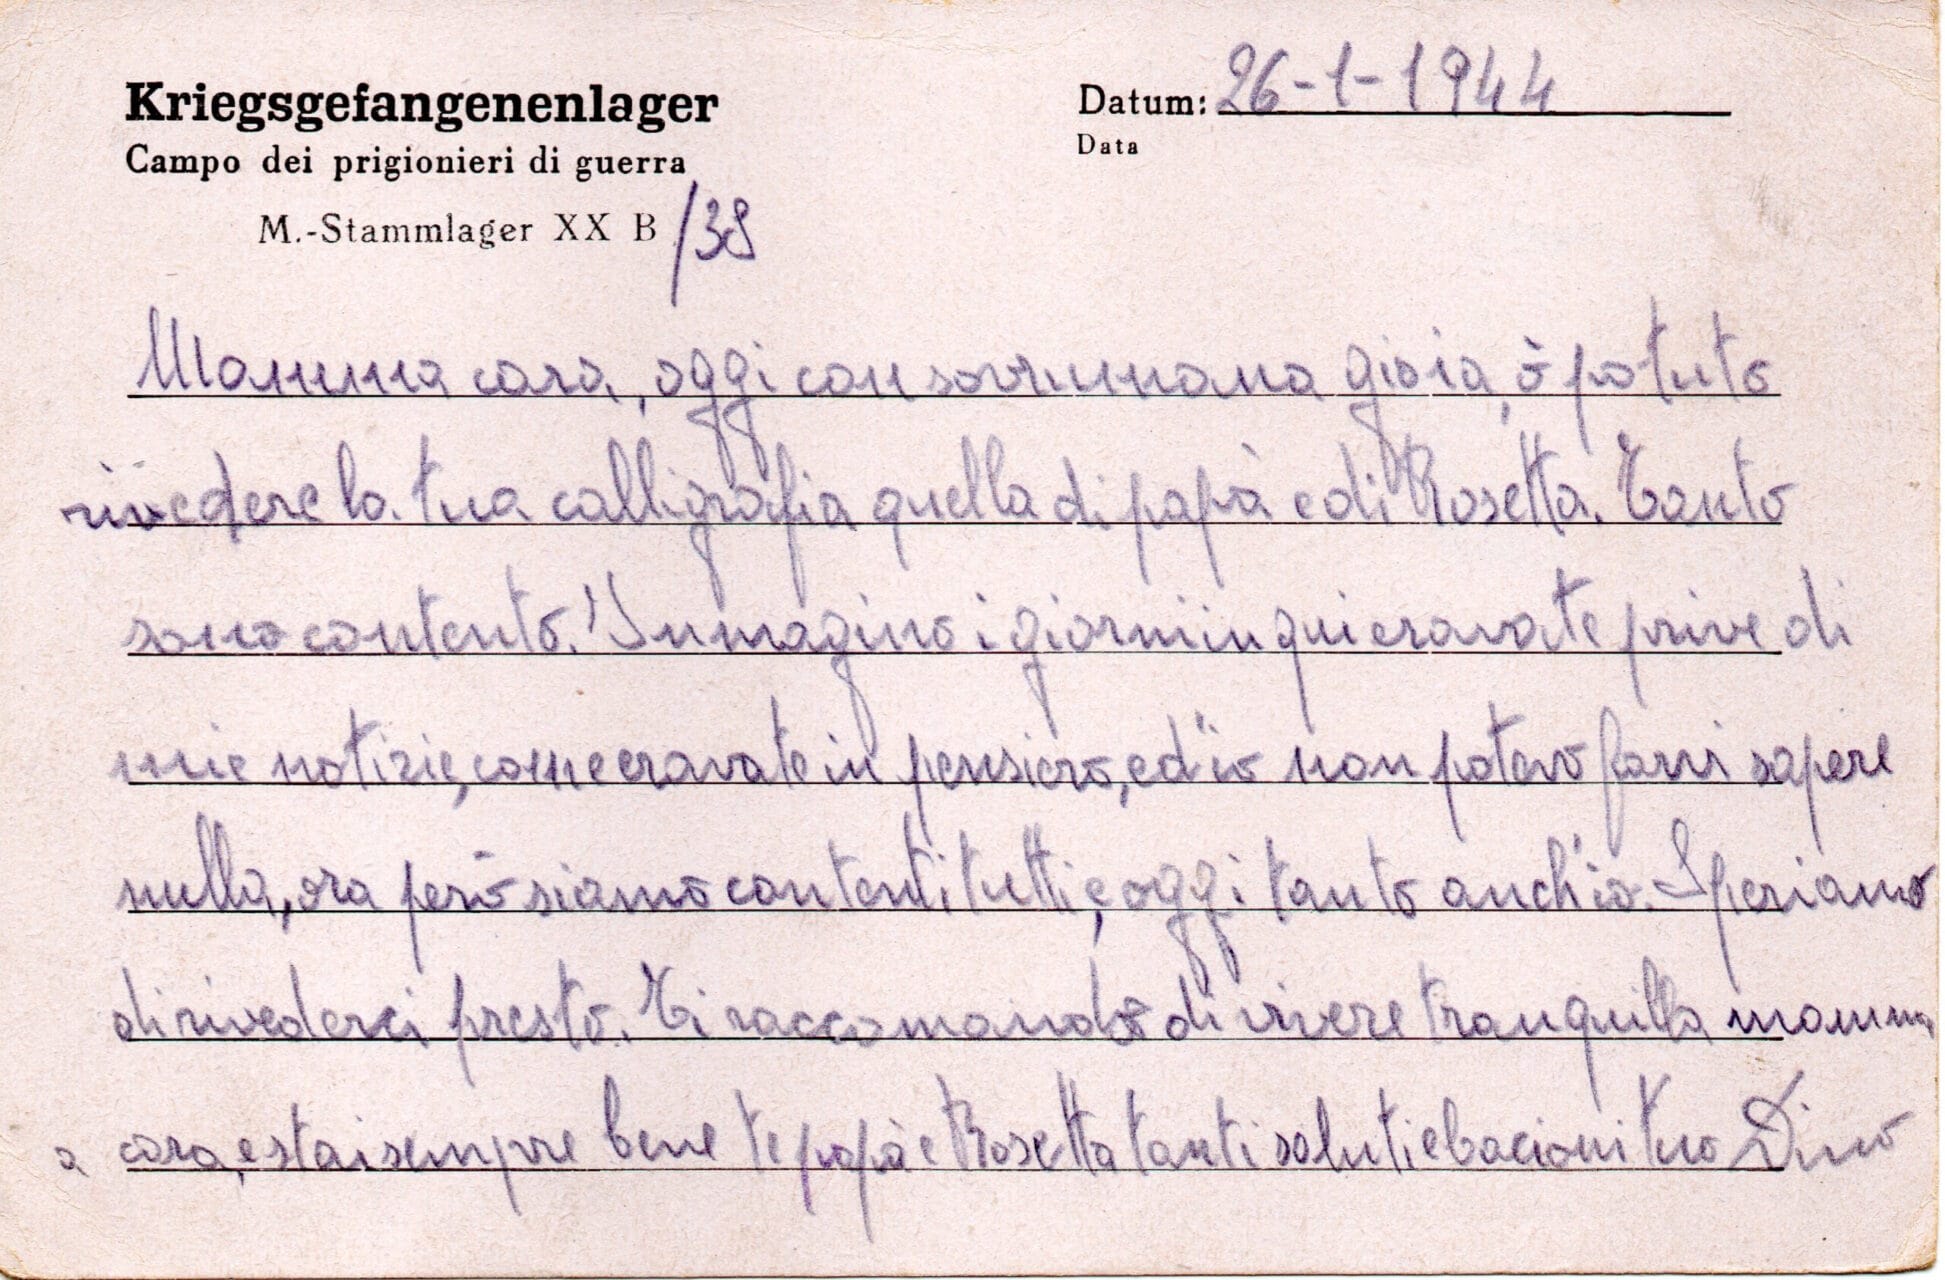 Kriegsgefangenenlager
Campo dei prigionieri di guerra
M.-Stammlager XX B /38
Datum: 26-1-1944
Data
Mamma cara, oggi con sovrumana gioia, ò potuto
rivedere la tua calligrafia quella di papà e di Rosetta. Tanto
sono contento! Immagino i giorni in qui eravate prive di
mie notizie, come eravate in pensiero, ed io non potevo farvi sapere
nulla, ora però siamo contenti tutti, e oggi tanto anch'io. Speriamo
di rivederci presto. Ti raccomando di vivere tranquilla mamm
a cara, e stai sempre bene te papà e Rosetta tanti saluti e bacioni tuo Dino